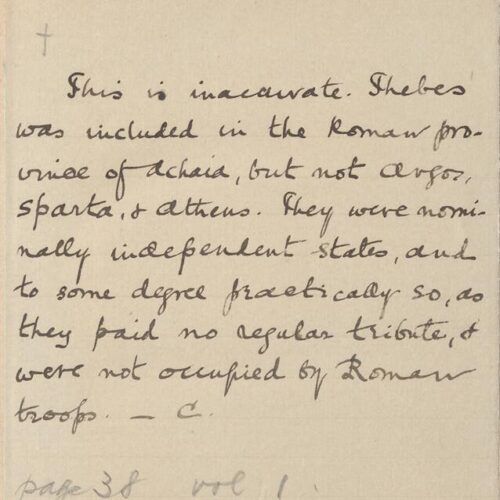 †
This is inaccurate. Thebes
was included in the Roman pro-
vince of Achaia, but not Argos,
Sparta, & Athens. They were nomi-
nally independent states, and
to some degree practically so, as
they paid no regular tribute, &
were not occupied by Roman
troops. — C.
page 38 vol 1.